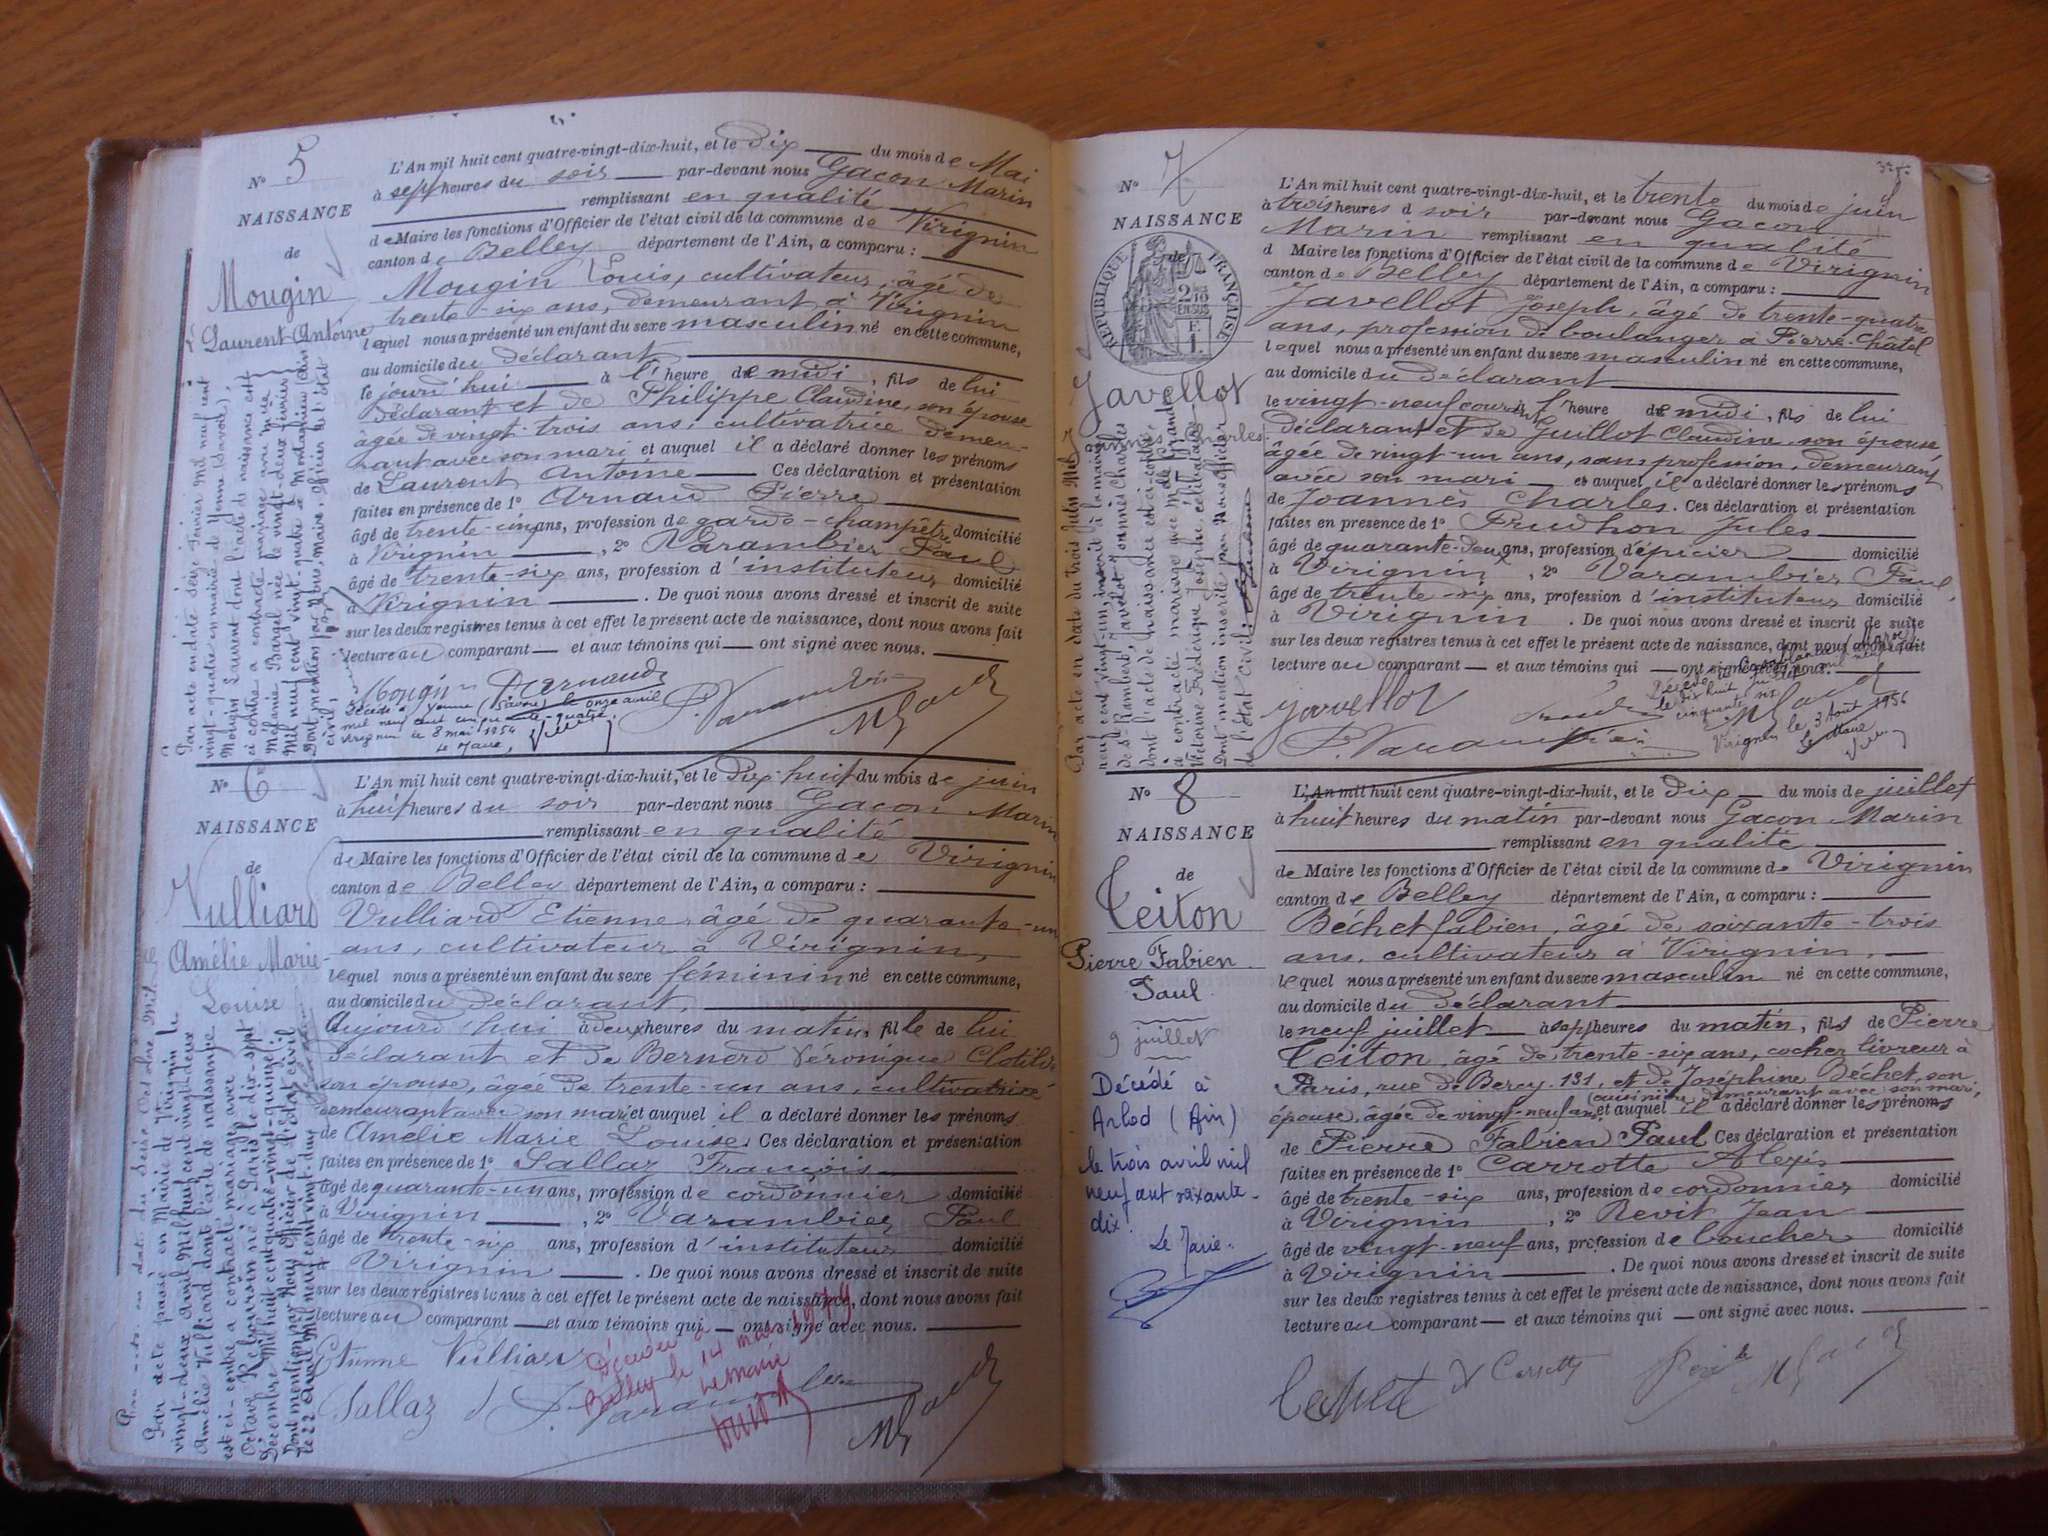 N° 5
NAISSANCE
de
Mougin
Laurent Antoine
L'An mil huit cent quatre-vingt-dix-huit, et le dix du mois de Mai
à sept heures du soir par-devant nous Gacon Marin
remplissant en qualité
de Maire les fonctions d'Officier de l'état civil de la commune de Virignin
canton de Belley département de l'Ain, a comparu :
Mougin Louis, cultivateur, âgé de
trente-six ans, demeurant à Virignin
lequel nous a présenté un enfant du sexe masculin né en cette commune,
au domicile du déclarant
le jourd'hui à l'heure de midi, fils de lui
déclarant et de Philippe Claudine, son épouse
âgée de vingt-trois ans, cultivatrice demeu-
rant avec son mari et auquel il a déclaré donner les prénoms
de Laurent Antoine Ces déclaration et présentation
faites en présence de 1° Arnaud Pierre
âgé de trente-cinq ans, profession de garde-champêtre domicilié
à Virignin , 2° Varambier Paul
âgé de trente-six ans, profession d'instituteur domicilié
à Virignin . De quoi nous avons dressé et inscrit de suite
sur les deux registres tenus à cet effet le présent acte de naissance, dont nous avons fait
lecture au comparant et aux témoins qui ont signé avec nous.
Mougin
Décédé à Yenne (Savoie) le onze avril
mil neuf cent cinquante-quatre.
Virignin le 8 mai 1954
Le Maire,
Par acte en date seize Février Mil neuf cent
vingt-quatre en mairie de Yenne (Savoie),
Mougin Laurent dont l'acte de naissance est
ci contre a contracté mariage avec
Mélanie née le vingt-deux février
Mil neuf cent vingt-quatre
Dont mention par Nous, Maire, Officier de l'état
civil
N° 6
NAISSANCE
de
Vulliard
Amélie Marie
Louise
L'An mil huit cent quatre-vingt-dix-huit, et le dix-huit du mois de juin
à huit heures du soir par-devant nous Gacon Marin
remplissant en qualité
de Maire les fonctions d'Officier de l'état civil de la commune de Virignin
canton de Belley département de l'Ain, a comparu :
Vulliard Etienne âgé de quarante-un
ans, cultivateur à Virignin,
lequel nous a présenté un enfant du sexe féminin né en cette commune,
au domicile du déclarant,
aujourd'hui à deux heures du matin, fille de lui
déclarant et de Bernerd Véronique Clotilde
son épouse, âgée de trente-un ans, cultivatrice
demeurant avec son mari et auquel il a déclaré donner les prénoms
de Amélie Marie Louise. Ces déclaration et présentation
faites en présence de 1° Sallaz François
âgé de quarante-un ans, profession de cordonnier domicilié
à Virignin , 2° Varambier Paul
âgé de trente-six ans, profession d'instituteur domicilié
à Virignin . De quoi nous avons dressé et inscrit de suite
sur les deux registres tenus à cet effet le présent acte de naissance, dont nous avons fait
lecture au comparant et aux témoins qui ont signé avec nous.
Etienne Vulliard
Sallaz
Décédée à
Belley le 14 mars 1979
Le Maire
Par acte passé en Mairie de Virignin le
vingt-deux Avril Mil neuf cent vingt-deux
Amélie Vulliard dont l'acte de naissance
est ci-contre a contracté mariage avec
Octave né à Paris le dix-sept
Décembre Mil huit cent quatre-vingt-quinze.
Dont mention par Nous Officier de l'Etat civil
le 22 Avril Mil neuf cent vingt-deux
N° 7
NAISSANCE
de
RÉPUBLIQUE FRANÇAISE
Javellot
Joannès Charles
L'An mil huit cent quatre-vingt-dix-huit, et le trente du mois de juin
à trois heures d soir par-devant nous Gacon
Marin remplissant en qualité
d Maire les fonctions d'Officier de l'état civil de la commune de Virignin
canton de Belley département de l'Ain, a comparu :
Javellot Joseph, âgé de trente-quatre
ans, profession de boulanger à Pierre-Châtel
lequel nous a présenté un enfant du sexe masculin né en cette commune,
au domicile du déclarant
le vingt-neuf courant à l'heure de midi, fils de lui
déclarant et de Guillot Claudine son épouse,
âgée de vingt-un ans, sans profession, demeurant
avec son mari et auquel il a déclaré donner les prénoms
de Joannès Charles. Ces déclaration et présentation
faites en présence de 1° Prudhon Jules
âgé de quarante-deux ans, profession d'épicier domicilié
à Virignin , 2° Varambier Paul,
âgé de trente-six ans, profession d'instituteur domicilié
à Virignin . De quoi nous avons dressé et inscrit de suite
sur les deux registres tenus à cet effet le présent acte de naissance, dont nous avons fait
lecture au comparant et aux témoins qui ont signé avec nous.
Javellot
P. Varambier
Décédé à Casablanca (Maroc)
le dix huit mil neuf cent
cinquante six
Virignin le 3 Août 1956
Le Maire
Par acte en date du trois Juin Mil
neuf cent vingt-un, inscrit à la mairie
de St-Rambert, Javelot Joannès Charles
dont l'acte de naissance est ci contre,
a contracté mariage avec Melle
Victorine Frédérique Josèphe, célibataire
Dont mention inscrite par Nous officier
de l'état civil.
N° 8
NAISSANCE
de
Teiton
Pierre Fabien
Paul
9 juillet
Décédé à
Arlod (Ain)
le trois avril mil
neuf cent soixante-
dix
Le Maire.
L'An mil huit cent quatre-vingt-dix-huit, et le dix du mois de juillet
à huit heures du matin par-devant nous Gacon Marin
remplissant en qualité
de Maire les fonctions d'Officier de l'état civil de la commune de Virignin
canton de Belley département de l'Ain, a comparu :
Béchet fabien, âgé de soixante-trois
ans, cultivateur à Virignin,
lequel nous a présenté un enfant du sexe masculin né en cette commune,
au domicile du déclarant
le neuf juillet à sept heures du matin, fils de Pierre
Teiton, âgé de trente-six ans, cocher livreur à
Paris, rue de Bercy 131, et de Joséphine Béchet, son
(cuisinière) demeurant avec son mari,
épouse, âgée de vingt-neuf ans, et auquel il a déclaré donner les prénoms
de Pierre Fabien Paul Ces déclaration et présentation
faites en présence de 1° Carrotte Alexis
âgé de trente-six ans, profession de cordonnier domicilié
à Virignin , 2° Revit Jean
âgé de vingt-neuf ans, profession de boucher domicilié
à Virignin . De quoi nous avons dressé et inscrit de suite
sur les deux registres tenus à cet effet le présent acte de naissance, dont nous avons fait
lecture au comparant et aux témoins qui ont signé avec nous.